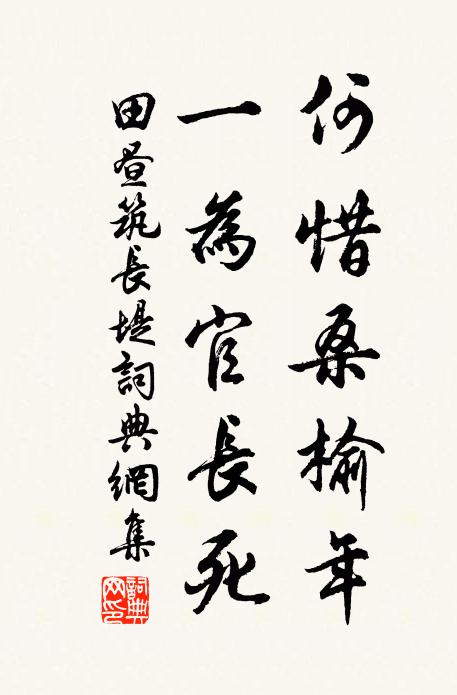 何惜桑榆年
一為官長死
田晝筑長堤詞典網集
詞典
网印